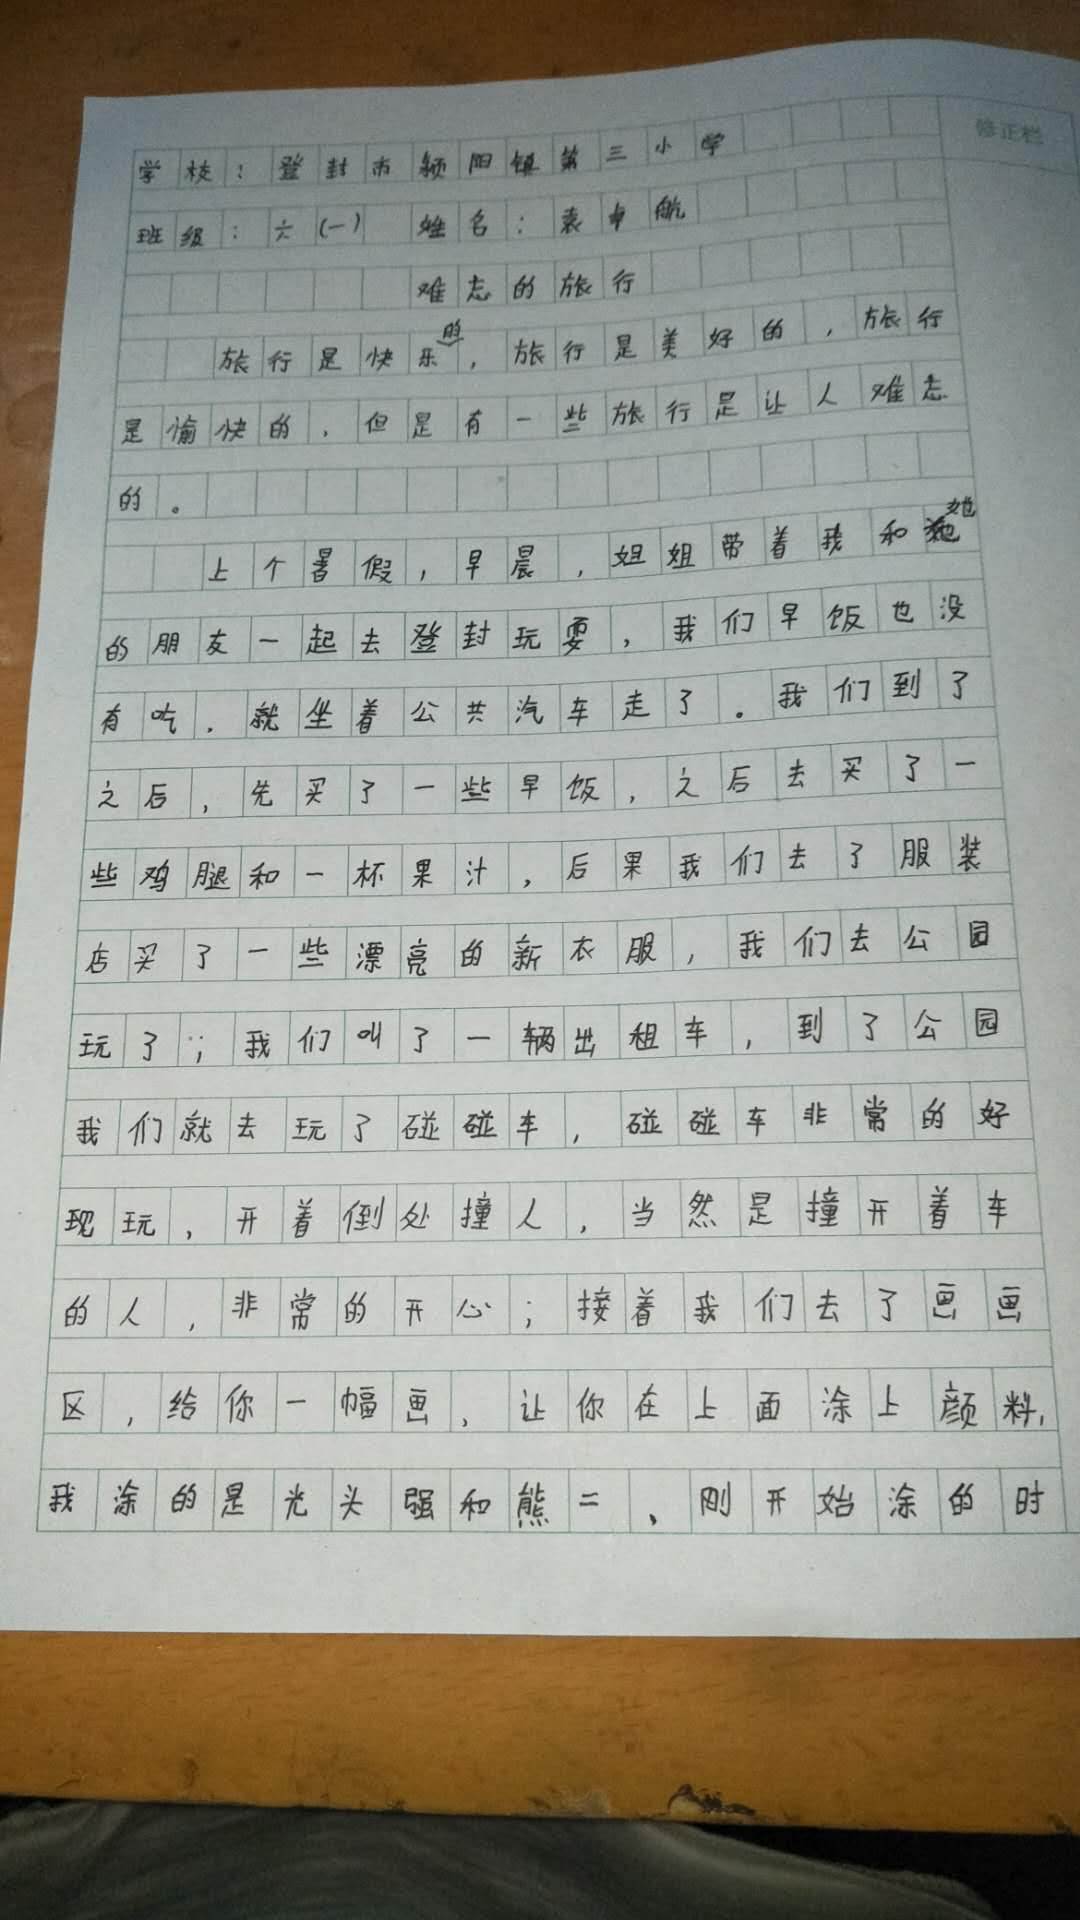 修正栏
学校：登封市颍阳镇第三小学
班级：六(一) 姓名：袁卓航
难忘的旅行
旅行是快乐的，旅行是美好的，旅行
是愉快的，但是有一些旅行是让人难忘
的。
上个暑假，早晨，姐姐带着我和她
的朋友一起去登封玩耍，我们早饭也没
有吃，就坐着公共汽车走了。我们到了
之后，先买了一些早饭，之后去买了一
些鸡腿和一杯果汁，后果我们去了服装
店买了一些漂亮的新衣服，我们去公园
玩了；我们叫了一辆出租车，到了公园
我们就去玩了碰碰车，碰碰车非常的好
现玩，开着倒处撞人，当然是撞开着车
的人，非常的开心；接着我们去了画画
区，给你一幅画，让你在上面涂上颜料，
我涂的是光头强和熊二，刚开始涂的时